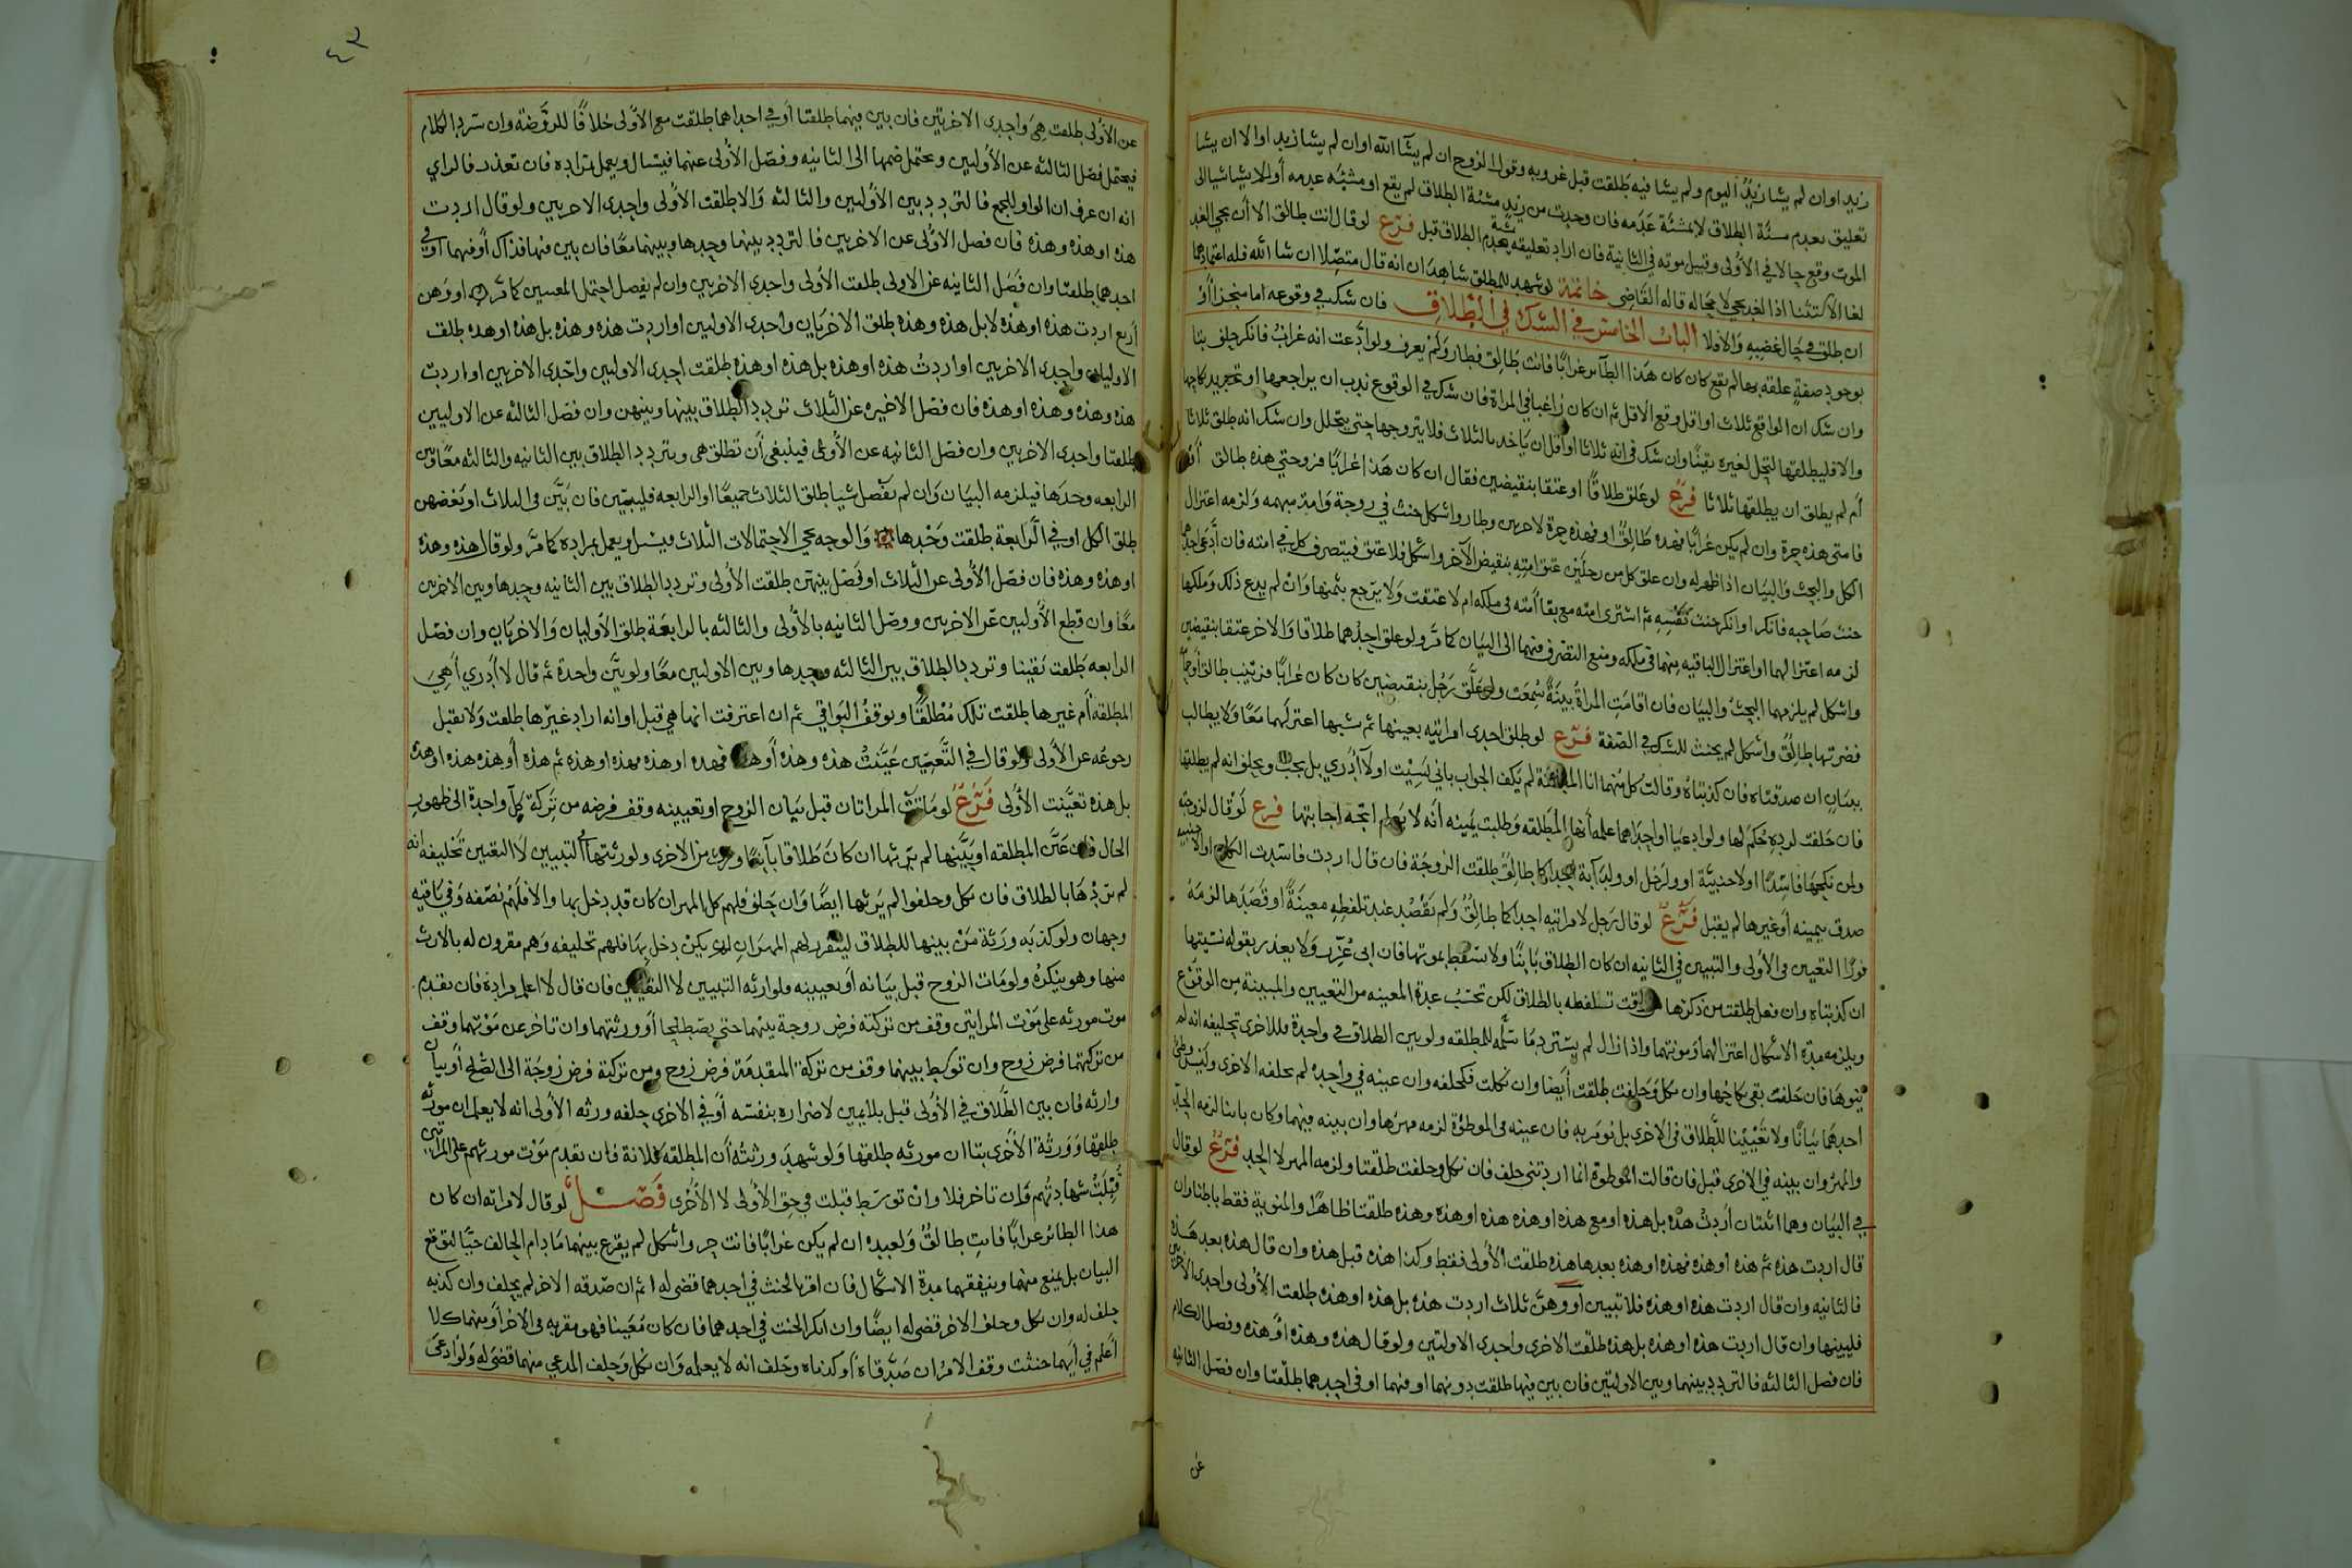 زيد او ان لم يشا زيد اليوم ولم يشا فيه طلقت قبل غروبه وقول الزوج ان لم يشا الله او ان لم يشا زيد او الا ان يشا
تعليق بعدم مشئة الطلاق لا بمشئة عدمه فان وجدت من زيد مشئة الطلاق لم يقع او مشئة عدمه أو لم يشا شيا الى
الموت وقع حالا في الأولى وقبيل موته في الثانية فان اراد تعليقه بعدم الطلاق قبل فرع لو قال انت طالق الا أن يجي الغد
لغا الاستثنا اذ الغد يجي لا محالة قاله القاضي خاتمة لو شهد للمطلق شاهدان انه قال متصلا ان شا الله فله اعتمادهما
ان طلق في حال غضبه والا فلا الباب الخامس في الشك في الطلاق فان شك في وقوعه اما منجزا أو
بوجود صفة علقه بها لم يقع كان كان هذا الطائر غرابا فانت طالق فطار ولم يعرف ولو ادعت انه غراب فانكر حلف بتا
وان شك ان الواقع ثلاث او اقل وقع الاقل ثم ان كان راغبا في المراة فان شك في الوقوع ندب ان يراجعها او تجديد نكاحها
والا فليطلقها لتحل لغيره يقينا وان شك في انه ثلاثا او أقل ان ياخذ بالثلاث فلا يتزوجها حتى يتحلل وان شك انه طلق ثلاثا
أم لم يطلق ان يطلقها ثلاثا فرع لو علق طلاقا او عتقا بنقيضين فقال ان كان هذا غرابا فزوجتي هذه طالق أو
فامتى هذه حرة وان لم يكن غرابا فهذه طالق او فهذه حرة لاخرين وطار واشكل حنث في زوجة وامة مبهمه ولزمه اعتزال
الكل والبحث والبيان اذا ظهر له وان علق كل من رجلين عتق امته بنقيض الآخر واشكل فلا عتق فيتصرف كل في امته فان ادعى احدهما
حنث صاحبه فانكر او انكر حنث نفسه ثم اشترى امته مع بقا أمته في ملكه ام لا عتقت ولا يرجع بثمنها وان لم يدع ذلك وملكها
لزمه اعتزالهما او اعتزال الباقيه منهما في ملكه ومنع التصرف فيهما الى البيان كما مر ولو علق احدهما طلاقا والاخر عتقا بنقيضين
واشكل لم يلزمهما البحث والبيان فان اقامت المراة بينة سمعت ولو علق رجل بنقيضين كان كان غرابا فزينب طالق أو حمامة
فضرتها طالق واشكل لم يحنث للشك في الصفة فرع لو طلق احدى امراتيه بعينها ثم نسيها اعتزلهما معا ولا يطالب
ببيان ان صدقتاه فان كذبتاه وقالت كل منهما انا المطلقة لم يكف الجواب باني نسيت او لا أدري بل يجب ويحلف انه لم يطلقها
فان حلفت لرده حكم لها ولو ادعيا او احداهما علمه أنها المطلقه وطلبت يمينه أنه لا يعلم اتجه اجابتها فرع لو قال لزوجته
ولمن نكحها فاسدا او لاجنبية او ولرجل او ولدابة احداكما طالق طلقت الزوجة فان قال اردت فاسدت النكاح او الاجنبيه
صدق بيمينه أو غيرها لم يقبل فرع لو قال رجل لامراتيه احداكما طالق ولم يقصد عند تلفظه معينة او قصدها لزمه
فورا التعيين في الأولى والتبيين في الثانيه ان كان الطلاق باينا ولا تسقط بموتهما فان ابى عزر ولا يعذر بقوله نسيتها
ان كذبتاه وان فعل طلقت من ذكرها من وقت تلفظه بالطلاق لكن تحسب عدة المعينه من التعيين والمبينة من الوقوع
ويلزمه مدة الاشكال اعتزالهما ومونتهما واذا زال لم يسترد ما سلمه للمطلقه ولو بين الطلاق في واحدة فللاخرى تحليفه انه لم
ينوها فان حلفت بقى نكاحها وان نكل وحلفت طلقت أيضا وان نكلت فكحلفه وان عينه في واحدة لم يحلفه الاخرى وليس وطئ
احدهما بيانا ولا تعيينا للطلاق في الاخرى بل نومر به فان عينه في الموطوة لزمه مهرها وان بينه فيهما وكان باينا لزمه الحد
والمهر وان بينه في الاخرى قبل فان قالت الموطوة انما اردتني حلف فان نكل وحلفت طلقتا ولزمه المهر لا الحد فرع لو قال
في البيان وهما اثنتان أردت هذه بل هذه او مع هذه او هذه هذه او هذه وهذه طلقتا ظاهرا والمنوية فقط باطنا وان
قال اردت هذه ثم هذه او هذه فهذه او هذه بعدها هذه طلقت الأولى فقط وكذا هذه قبل هذه وان قال هذه بعد هذه
فالثانيه وان قال اردت هذه او هذه فلا تبيين او وهن ثلاث اردت هذه بل هذه او هذه طلقت الأولى واحدى الاخرتين
فليبينها وان قال اردت هذه او هذه بل هذه طلقت الاخرى واحدى الاوليتين ولو قال هذه وهذه او هذه وفصل الكلام
فان فصل الثالثه فالتردد بينهما وبين الاوليتين فان بين فيها طلقت دونهما او فيهما او في احدهما طلقتا وان فصل الثانيه
عن
٤٣
عن الأولى طلقت هي واحدى الاخرتين فان بين فيهما طلقتا أو في احداهما طلقت مع الأولى خلافا للروضة وان سرد الكلام
فيحتمل فصل الثالثه عن الأوليين ويحتمل ضمها الى الثانيه وفصل الأولى عنهما فيسال ويعمل بمراده فان تعذر فالراي
انه ان عرف ان الواو للجمع فالتردد بين الأوليين والثالثه والا طلقت الأولى واحدى الاخريين ولو قال اردت
هذه او هذه وهذه فان فصل الاولى عن الاخريين فالتردد بينهما وحدها وبينهما معا فان بين فيها فذاك أو فيهما أو في
احدهما طلقتا وان فصل الثانيه عن الاولى طلقت الأولى واحدى الاخريين وان لم يفصل احتمل المعنيين كما مر او وهن
أربع اردت هذه او هذه لا بل هذه وهذه طلق الاخريان واحدى الاوليين او اردت هذه وهذه بل هذه او هذه طلقت
الاوليان واحدى الاخريين او اردت هذه او هذه بل هذه او هذه طلقت احدى الاوليين واحدى الاخريين او اردت
هذه وهذه وهذه او هذه فان فصل الاخيره عن الثلاث تردد الطلاق بينها وبينهن وان فصل الثالثه عن الاوليين
طلقتا واحدى الاخريين وان فصل الثانيه عن الأولى فينبغي أن تطلق هى ويتردد الطلاق بين الثانيه والثالثه معا وبين
الرابعه وحدها فيلزمه البيان وان لم يفصل شيا طلق الثلاث جميعا او الرابعه فليبين فان بين في الثلاث او بعضهن
طلق الكل او في الرابعة طلقت وحدها والوجه مجي الاحتمالات الثلاث فيسل ويعمل بمراده كما مر ولو قال هذه وهذه
او هذه وهذه فان فصل الأولى عن الثلاث او فصل بينهن طلقت الأولى وتردد الطلاق بين الثانيه وحدها وبين الاخرتين
معا وان قطع الأوليين عن الاخريين ووصل الثانيه بالأولى والثالثه بالرابعة طلق الأوليان والاخريان وان فصل
الرابعه طلقت يقينا وتردد الطلاق بين الثالثه وحدها وبين الاوليين معا ولو بين واحدة ثم قال لا أدري أهي
المطلقه أم غيرها طلقت تلك مطلقا وتوقف البواقي ثم ان اعترفت انها هي قبل او انه اراد غيرها طلقت ولا يقبل
رجوعه عن الأولى ولو قال في التعيين عينت هذه وهذه أو هذه فهذه او هذه فهذه او هذه ثم هذه أو هذه هذه او هذه
بل هذه تعينت الأولى فرع لو ماتت المراتان قبل بيان الزوج او تعيينه وقف فرضه من تركة كل واحدة الى ظهور
الحال فان عين المطلقه او بينها لم يرثها ان كان طلاقا باينا وورث من الاخرى ولورثتها في التبيين لا التعيين تحليفه انه
لم يردها بالطلاق فان نكل وحلفوا لم يرثها ايضا وان حلف فلهم كل المهر ان كان قد دخل بها والا فلهم نصفه وفي باقيه
وجهان ولو كذبه ورثة من بينها للطلاق ليتقرر لهم المهر ان لم يكن دخل بها فلهم تحليفه وهم مقرون له بالارث
منها وهو ينكره ولو مات الزوج قبل بيانه أو تعيينه فلوارثه التبيين لا التعيين فان قال لا اعلم مراده فان تقدم
موت مورثه على موت المراتين وقف من تركته فرض زوجة بينهما حتى يصطلحا أو ورثتهما وان تاخر عن موتهما وقف
من تركتهما فرض زوج وان توسط بينهما وقف من تركة المتقدمة فرض زوج ومن تركته فرض زوجة الى الصلح أو بيان
وارثه فان بين الطلاق في الأولى قبل بلا يمين لاضراره بنفسه أو في الاخرى حلفه ورثه الأولى انه لا يعلم ان مورثه
طلقها وورثة الأخرى بتا ان مورثه طلقها ولو شهد ورثته أن المطلقه فلانة فان تقدم موت مورثهم على المراتين
قبلت شهادتهم فان تاخر فلا وان توسط قبلت في حق الأولى لا الأخرى فصل لو قال لامراته ان كان
هذا الطائر غرابا فانت طالق ولعبده ان لم يكن غرابا فانت حر واشكل لم يقرع بينهما ما دام الحالف حيا لتوقع
البيان بل يمنع منهما وينفقهما مدة الاشكال فان اقر بالحنث في احدهما قضى له ثم ان صدقه الاخر لم يحلف وان كذبه
حلف له وان نكل وحلف الاخر قضى له ايضا وان انكر الحنث في احدهما فان كان معينا فهو مقر به في الاخر أو منهما كلا
أعلم في أيهما حنثت وقف الامر ان صدقاه أو كذباه وحلف انه لا يعلمه وان نكل وحلف المدعي منهما قضى له ولو ادعى